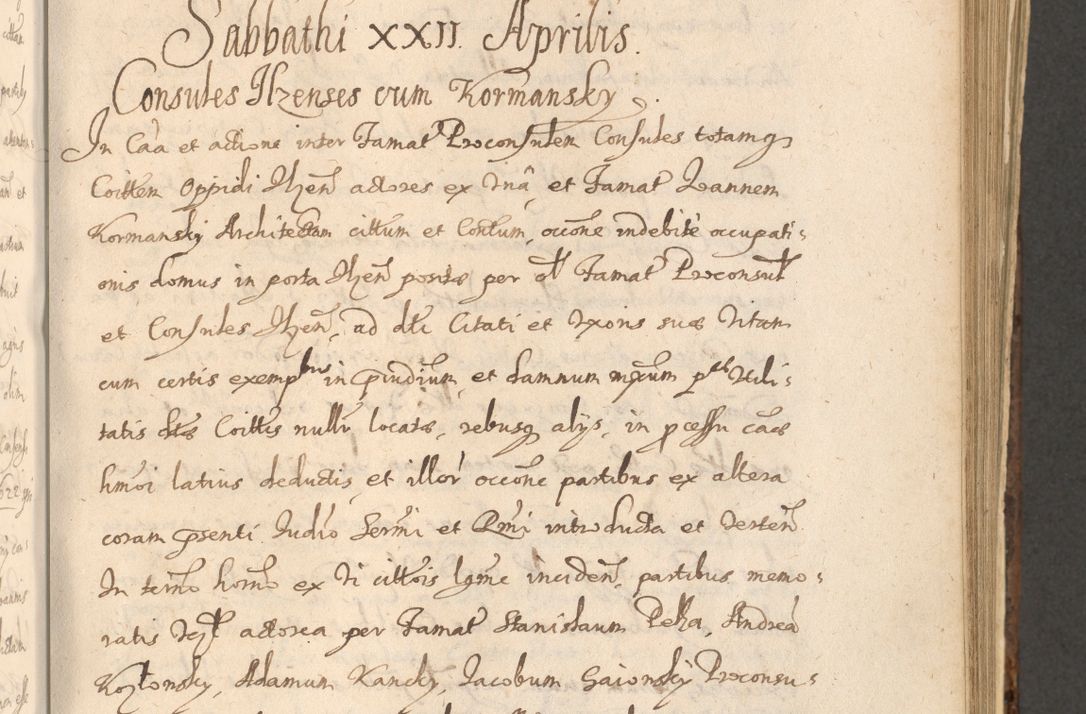 Sabbathi XXII Aprilis.
Consules Ilzenses cum Kormansky.
In Caâ et actione inter Famat Proconsulem Consules totamq
Coittem Oppidi Ilzen actores ex unâ, et Famat Joannem
Kormansky Architectam cittum et Contum, occone indebite occupati-
onis domus in porta Ilzen posita per olt Famat Proconsul
et Consules Ilzen, ad dti Citati et Uxoris suæ Vitam
cum certis exempbus in pjudium, et damnum mxum ptæ Utili-
tatis dtæ Coittis nullr locatæ, rebusq alys, in pcessu caæ
hmoi latius deductis, et illor occone partibus ex altera
coram psenti Judio Sermi et Rmi introducta et verten
In termo horno ex vi cittois lgme inciden, partibus memo-
ratis actorea per Famat Stanislaum Pelka, Andrea
Kozlonsky, Adamum Kancky, Jacobum Gaionsky Proconsu-